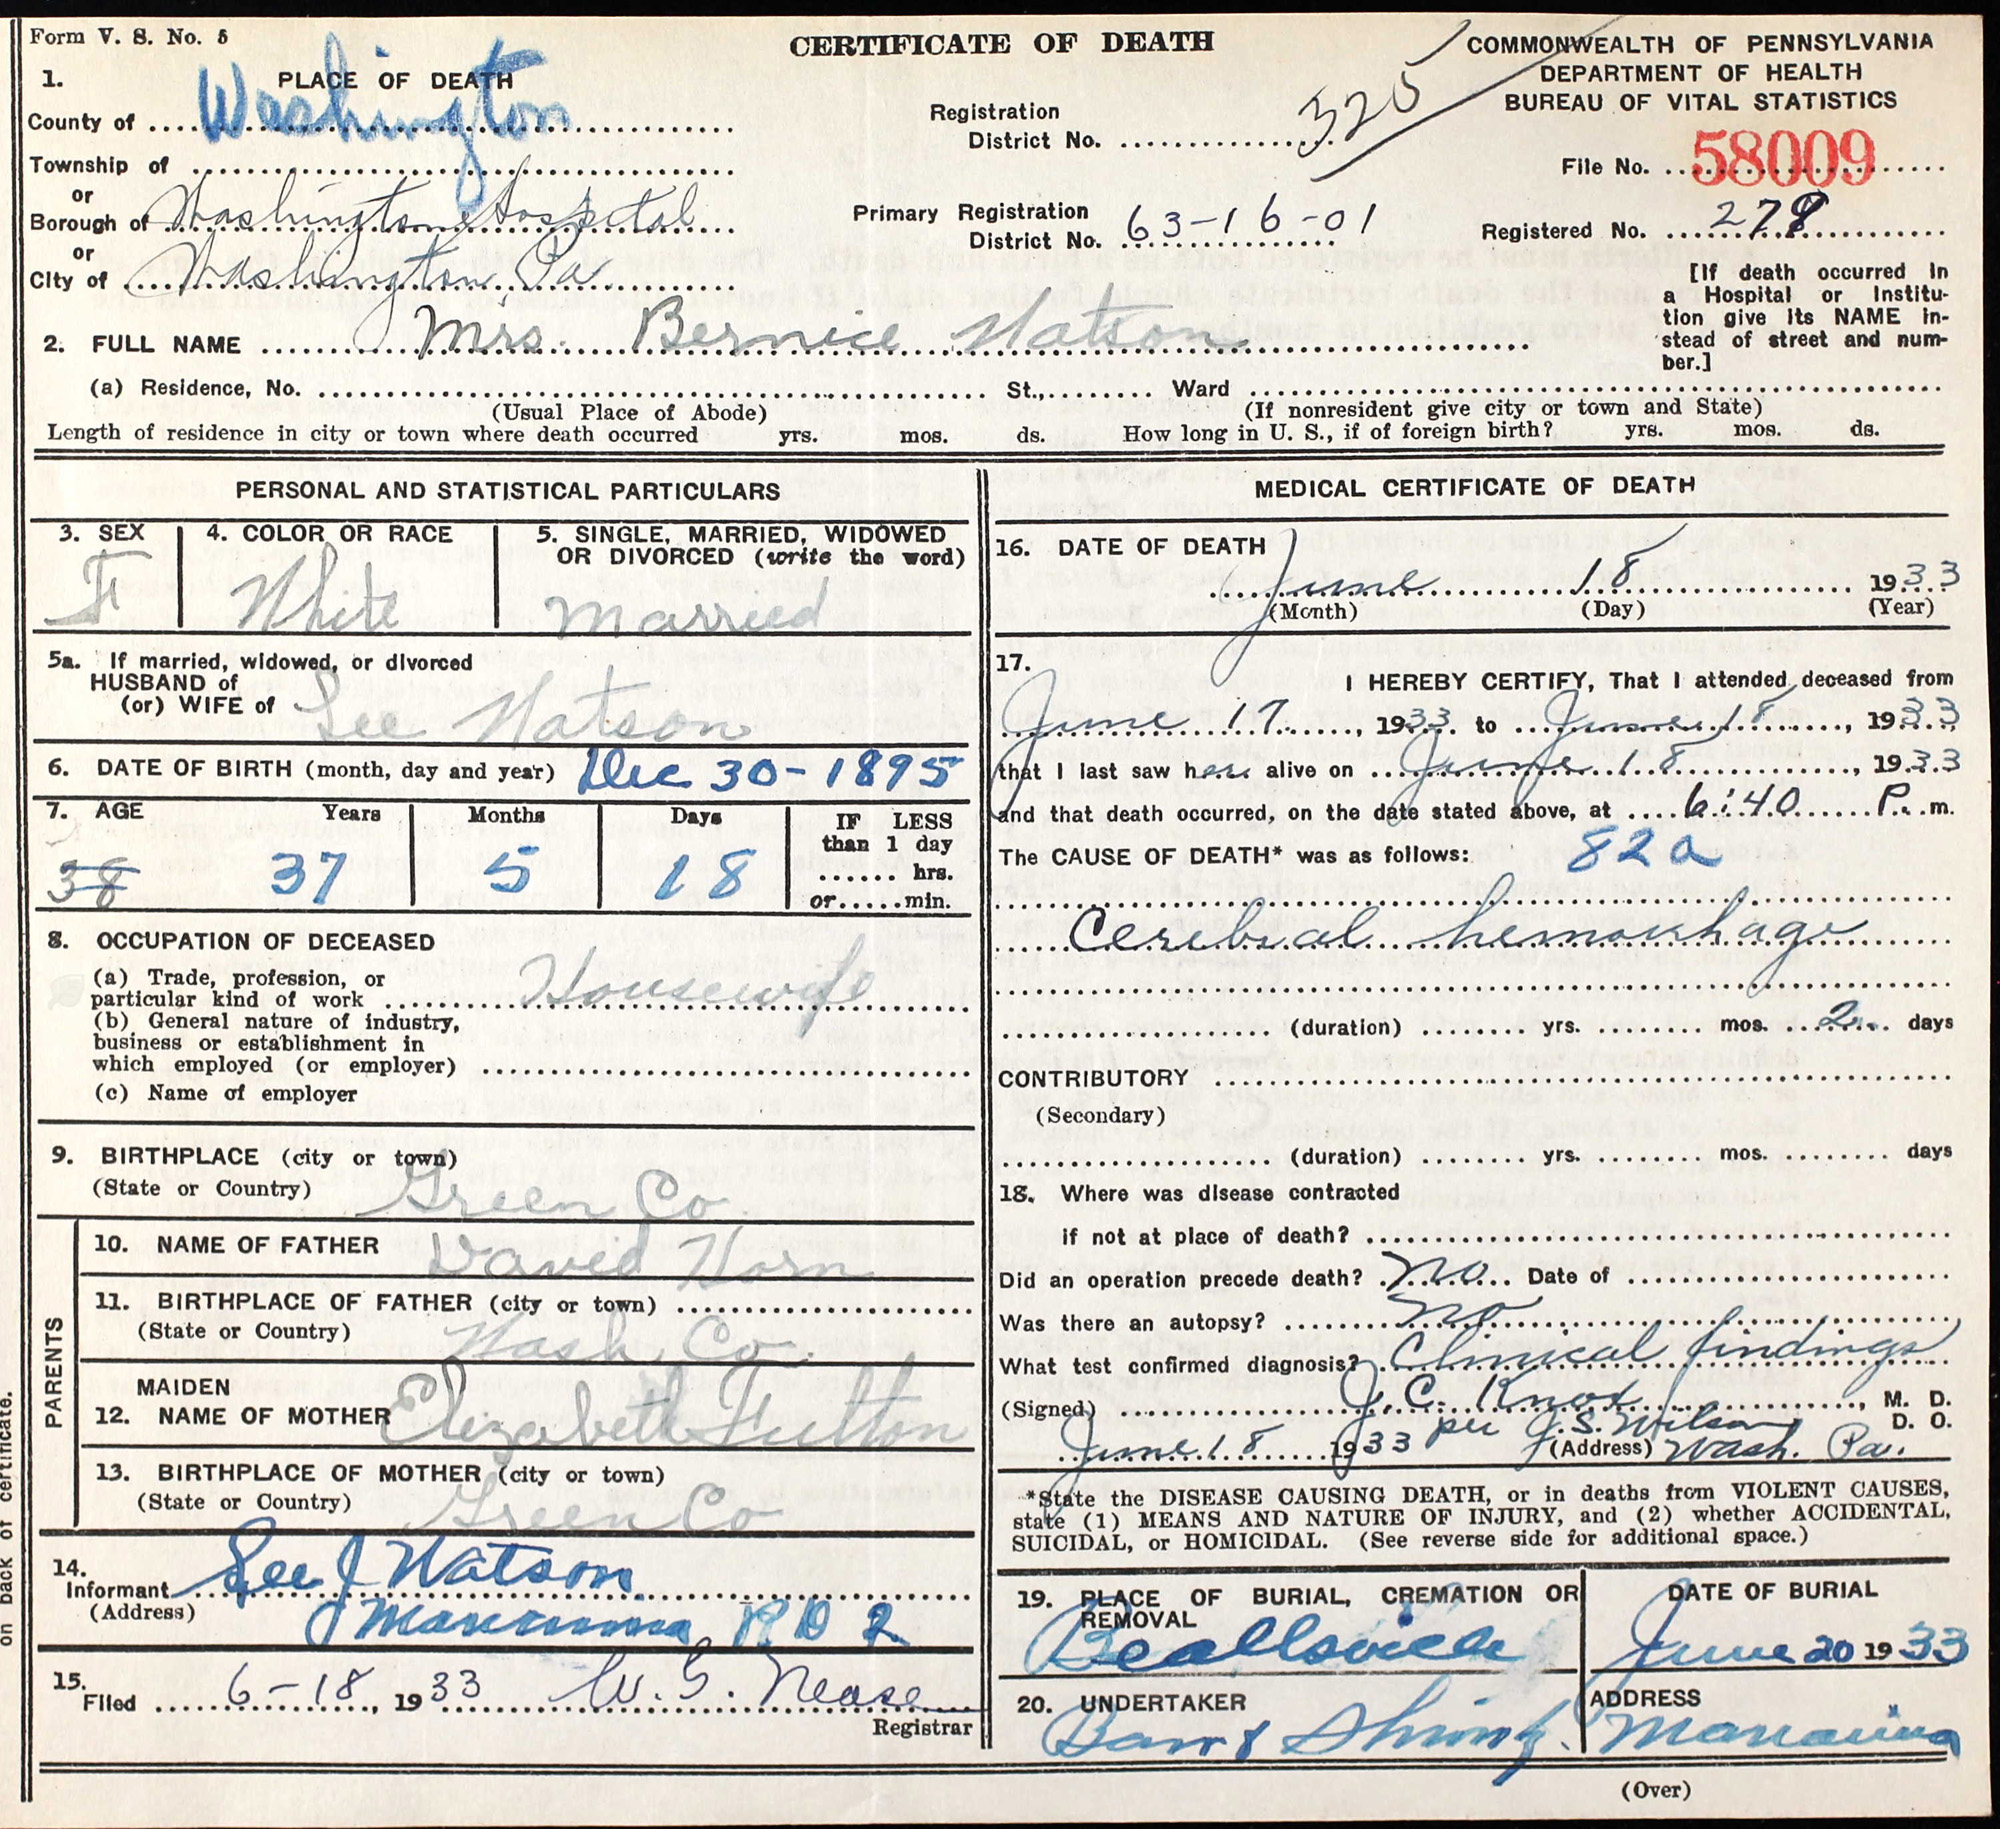 Form V. S. No. 5
CERTIFICATE OF DEATH
COMMONWEALTH OF PENNSYLVANIA
DEPARTMENT OF HEALTH
BUREAU OF VITAL STATISTICS
1. PLACE OF DEATH
County of Washington
Township of
or
Borough of Washington Hospital
or
City of Washington Pa.
Registration
District No. 325
Primary Registration
District No. 63-16-01
File No. 58009
Registered No. 278
[If death occurred in
a Hospital or Institu-
tion give its NAME in-
stead of street and num-
ber.]
2. FULL NAME Mrs. Bernice Watson
(a) Residence, No. St., Ward
(Usual Place of Abode) (If nonresident give city or town and State)
Length of residence in city or town where death occurred yrs. mos. ds. How long in U. S., if of foreign birth? yrs. mos. ds.
PERSONAL AND STATISTICAL PARTICULARS
3. SEX 4. COLOR OR RACE 5. SINGLE, MARRIED, WIDOWED
OR DIVORCED (write the word)
F White Married
5a. If married, widowed, or divorced
HUSBAND of
(or) WIFE of Lee Watson
6. DATE OF BIRTH (month, day and year) Dec 30-1895
7. AGE Years Months Days IF LESS
than 1 day
hrs.
or min.
38 37 5 18
8. OCCUPATION OF DECEASED
(a) Trade, profession, or
particular kind of work Housewife
(b) General nature of industry,
business or establishment in
which employed (or employer)
(c) Name of employer
9. BIRTHPLACE (city or town)
(State or Country) Green Co
PARENTS
10. NAME OF FATHER David Horn
11. BIRTHPLACE OF FATHER (city or town)
(State or Country) Wash. Co.
MAIDEN
12. NAME OF MOTHER Elizabeth Fulton
13. BIRTHPLACE OF MOTHER (city or town)
(State or Country) Green Co
14.
Informant Lee J Watson
(Address) Marianna R D 2
15.
Filed 6-18, 1933 W. G. Nease
Registrar
on back of certificate.
MEDICAL CERTIFICATE OF DEATH
16. DATE OF DEATH
June 18 1933
(Month) (Day) (Year)
17.
I HEREBY CERTIFY, That I attended deceased from
June 17, 1933 to June 18, 1933
that I last saw her alive on June 18, 1933
and that death occurred, on the date stated above, at 6:40 P. m.
The CAUSE OF DEATH* was as follows: 82a
Cerebral hemorrhage
(duration) yrs. mos. 2 days
CONTRIBUTORY
(Secondary)
(duration) yrs. mos. days
18. Where was disease contracted
if not at place of death?
Did an operation precede death? No Date of
Was there an autopsy? No
What test confirmed diagnosis? Clinical findings
(Signed) J. C. Knox, M. D.
per J. S. Wilson D. O.
June 18 1933 (Address) Wash. Pa.
*State the DISEASE CAUSING DEATH, or in deaths from VIOLENT CAUSES,
state (1) MEANS AND NATURE OF INJURY, and (2) whether ACCIDENTAL,
SUICIDAL, or HOMICIDAL. (See reverse side for additional space.)
19. PLACE OF BURIAL, CREMATION OR
REMOVAL
Beallsville
DATE OF BURIAL
June 20 1933
20. UNDERTAKER ADDRESS
Marianna
(Over)